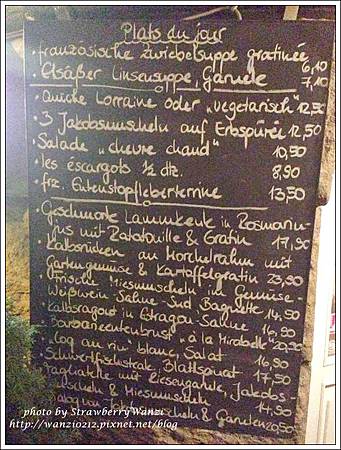 Plats du jour
• französische Zwiebelsuppe gratinée 6,10
• Elsäßer Linsensuppe, Garnele 7,10
• Quiche Lorraine oder „vegetarisch" 12,50
• 3 Jakobsmuscheln auf Erbspürée 12,50
• Salade „chevre chaud" 10,50
• les éscargots ½ dtz. 8,90
• frz. Entenstopfleberterrine 13,50
• Geschmorte Lammkeule in Rosmarin-
jus mit Ratatouille & Gratin 17,90
• Kalbsrücken an Morchelrahm mit
Gartengemüse & Kartoffelgratin 23,90
• Frische Miesmuscheln in Gemüse-
Weißwein-Sahne-Sud Baguette 14,50
• Kalbsragout in Estragon-Sahne 16,90
• Barbarieentenbrust „à la Mirabelle" 20,90
• „Coq au vin" blanc, Salat 16,90
• Schwertfischsteak, Blattspinat 17,50
• Tagliatelle mit Riesengarnele, Jakobs-
muscheln & Miesmuscheln 14,90
Jakobsmuscheln & Garnelen 20,50
photo by StrawberryWanzi
http://wanzi0212.pixnet.net/blog